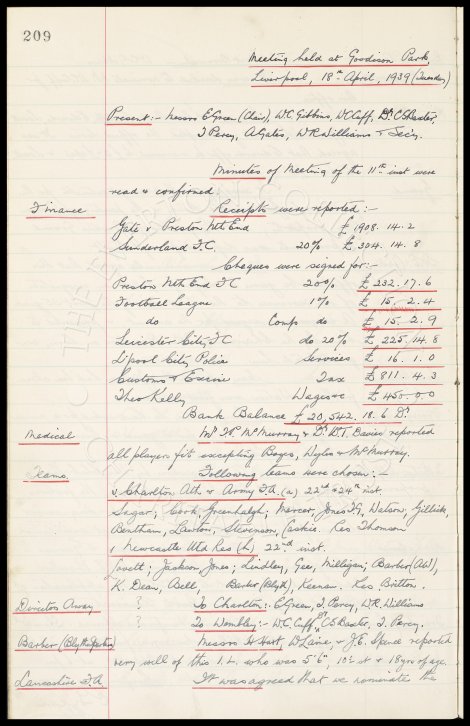 209
Meeting held at Goodison Park
Liverpool, 18th April, 1939 (Tuesday)
Present:- Messrs E. Green (Chair), W.C. Gibbins, W.C. Cuff, Dr. C.S. Baxter,
T. Percy, A. Gates, W.R. Williams & Sec'y.
Minutes of Meeting of the 11th inst were
read & confirmed
Finance Receipts were reported:-
Gate v Preston Nth End £ 1908. 14. 2
Sunderland F.C. 20% £ 304. 14. 8
Cheques were signed for:-
Preston Nth End F.C 20% £ 232. 17. 6
Football League 1% £ 15. 2. 4
do Comps do £ 15. 2. 9
Leicester City F.C do 20% £ 225. 14. 8
L'pool City Police Services £ 16. 1. 0
Customs & Excise Tax £ 811. 4. 3
Theo Kelly Wages etc £ 450. 0. 0
Bank Balance £ 20,542. 18. 6 Dr
Medical McMurray & Dr. D.T. Davies reported
all players fit excepting Boyes, and McMurray.
Teams Following teams were chosen:-
v Charlton Ath. & Army F.A. (a) 22nd & 24th inst.
Sagar; Cook, Greenhalgh; Mercer, Jones T.G, Watson, Gillick,
Bentham, Lawton, Stevenson, Caskie. Res Thomson
v Newcastle Utd Res (h) 22nd inst.
Lovett; Jackson, Jones; Lindley, Gee, Milligan; Barber (AW),
K. Dean, Bell, Barber (Blyth), Keenan. Res Britton.
Directors Away ? To Charlton:- E. Green, T. Percy, W.R. Williams
? To Wembley:- W.C. Cuff, Dr C.S. Baxter, T. Percy.
Barber (Blyth Spartans) Messrs H. Hart, W. Laine, & J.E. Spence reported
very well of this I.L. who was 5'6", 10st & 18 yrs of age.
Lancashire F.A It was agreed that we nominate the